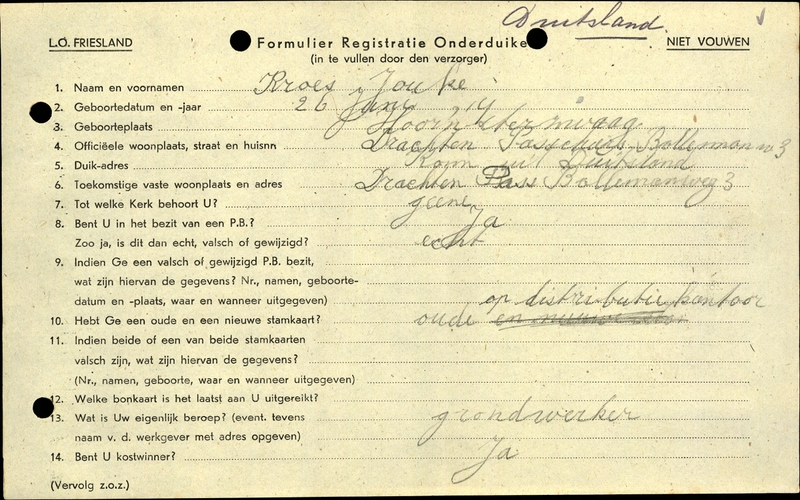 Duitsland.
L.O. FRIESLAND Formulier Registratie Onderduike NIET VOUWEN
(in te vullen door den verzorger)
1. Naam en voornamen Kroes, Jouke
2. Geboortedatum en -jaar 26 Juni '14
3. Geboorteplaats Hoornsterzwaag
4. Officiëele woonplaats, straat en huisnn Drachten Bolleman 3
5. Duik-adres Kom uit Duitsland
6. Toekomstige vaste woonplaats en adres Drachten Pass Bollemanweg 3
7. Tot welke Kerk behoort U? geene
8. Bent U in het bezit van een P.B.? Ja
Zoo ja, is dit dan echt, valsch of gewijzigd? echt
9. Indien Ge een valsch of gewijzigd P.B. bezit,
wat zijn hiervan de gegevens? Nr., namen, geboorte-
datum en -plaats, waar en wanneer uitgegeven) op distributie kantoor
10. Hebt Ge een oude en een nieuwe stamkaart? oude en nieuwe
11. Indien beide of een van beide stamkaarten
valsch zijn, wat zijn hiervan de gegevens?
(Nr., namen, geboorte, waar en wanneer uitgegeven)
12. Welke bonkaart is het laatst aan U uitgereikt?
13. Wat is Uw eigenlijk beroep? (event. tevens grondwerker
naam v. d. werkgever met adres opgeven)
14. Bent U kostwinner? Ja
(Vervolg z.o.z.)